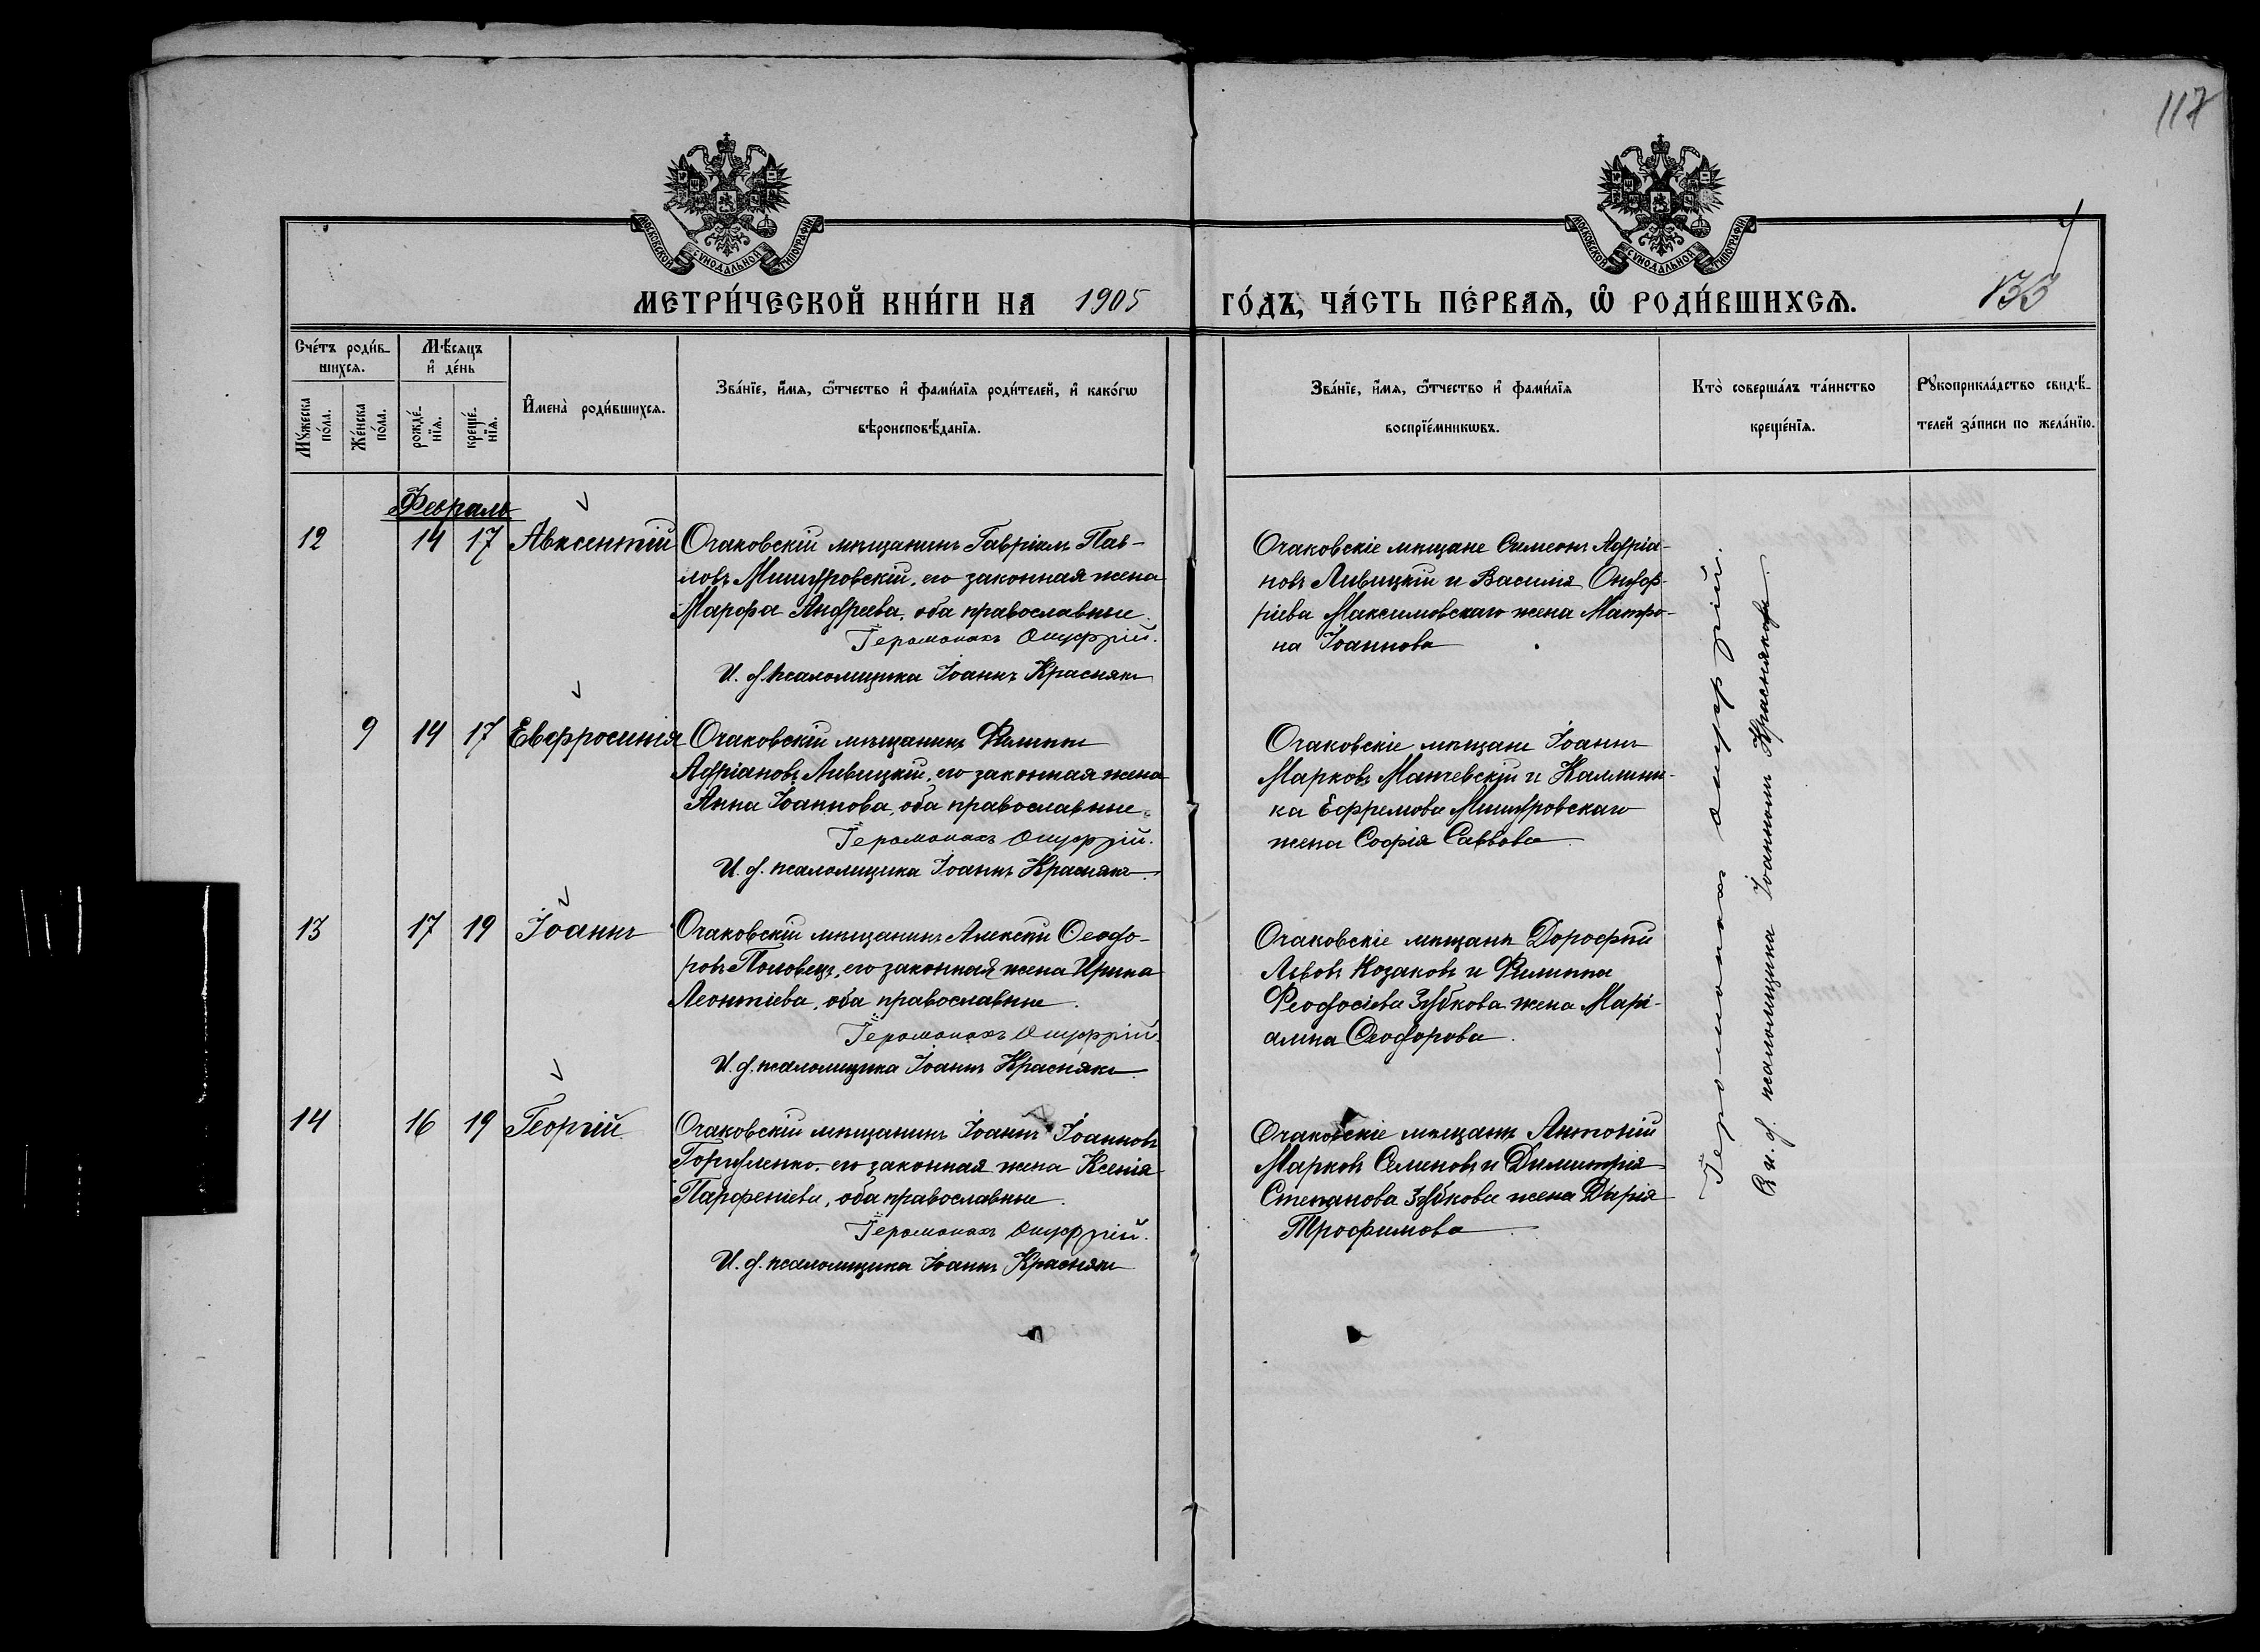 117
МОСКОВСКОЙ СѴНОДАЛЬНОЙ ТИПОГРАФІИ
МОСКОВСКОЙ СѴНОДАЛЬНОЙ ТИПОГРАФІИ
МЕТРИ́ЧЕСКОЙ КНИ́ГИ НА 1905 ГО́ДЪ, ЧА́СТЬ ПЕ́РВАЯ, Ѡ РОДИ́ВШИХСЯ.
Сче́тъ роди́в-
шихся.
Мѣ́сяцъ
и҆ де́нь
Мꙋ́жеска
по́ла.
Же́нска
по́ла.
рожде́-
нїя.
креще́-
нїя.
И҆мена̀ роди́вшихся.
Зва́нїе, и҆́мя, ѻ҆́тчество и҆ фами́лїя роди́телей, и҆ како́гѡ
вѣроисповѣ́данїя.
Зва́нїе, и҆́мя, ѻ҆́тчество и҆ фами́лїя
воспрїе́мникѡвъ.
Кто̀ соверша́лъ та́инство
креще́нїя.
Рꙋкоприкла́дство свидѣ́-
телей за́писи по жела́нїю.
Февраль
12 14 17 Авксентій
Очаковскій мѣщанинъ Гавріилъ Пав-
ловъ Мишуровскій, его законная жена
Марфа Андреева, оба православные.
Іеромонахъ Онуфрій.
И. д. псаломщика Іоаннъ Краснякъ
Очаковскіе мѣщане Симеонъ Адріа-
новъ Ливицкій и Василія Онуф-
ріева Максимовскаго жена Матро-
на Іоаннова
9 14 17 Евфросинія
Очаковскій мѣщанинъ Филиппъ
Адріановъ Ливицкій, его законная жена
Анна Іоаннова, оба православные.
Іеромонахъ Онуфрій.
И. д. псаломщика Іоаннъ Краснякъ.
Очаковскіе мѣщане Іоаннъ
Марковъ Мачевскій и Каллини-
ка Ефремова Мишуровскаго
жена Софія Саввова
13 17 19 Іоаннъ
Очаковскій мѣщанинъ Алексѣй Ѳеодо-
ровъ Половецъ, его законная жена Ирина
Леонтіева, оба православные.
Іеромонахъ Онуфрій.
И. д. псаломщика Іоаннъ Краснякъ.
Очаковскіе мѣщане Дорофей
Львовъ Козаковъ и Филиппа
Феодосіева Зубкова жена Марі-
амна Ѳеодорова.
14 16 19 Георгій.
Очаковскій мѣщанинъ Іоаннъ Іоанновъ
Горуленко, его законная жена Ксенія
Парфеніева, оба православные.
Іеромонахъ Онуфрій.
И. д. псаломщика Іоаннъ Краснякъ
Очаковскіе мѣщане Антоній
Марковъ Семеновъ и Димитрія
Степанова Зубкова жена Дарія
Трофимова.
Іеромонахъ Онуфрій.
Съ и. д. псаломщика Іоанномъ Краснякомъ.